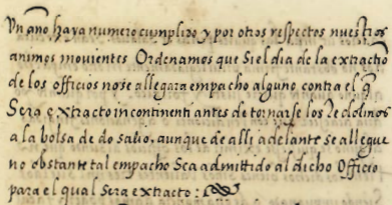 Vn año haya numero cumplido y por otros respectos nuestros
animos mouientes Ordenamos que Si el dia de la extractiō
de los officios no se allegara empacho alguno contra el q̄
Sera extracto incontinenti antes de tornar se los redolinos
a la bolsa do salio, aunque de alli adelante se allegue
no obstante tal empacho Sea admittido al dicho Officio
para el qual Sera extracto: